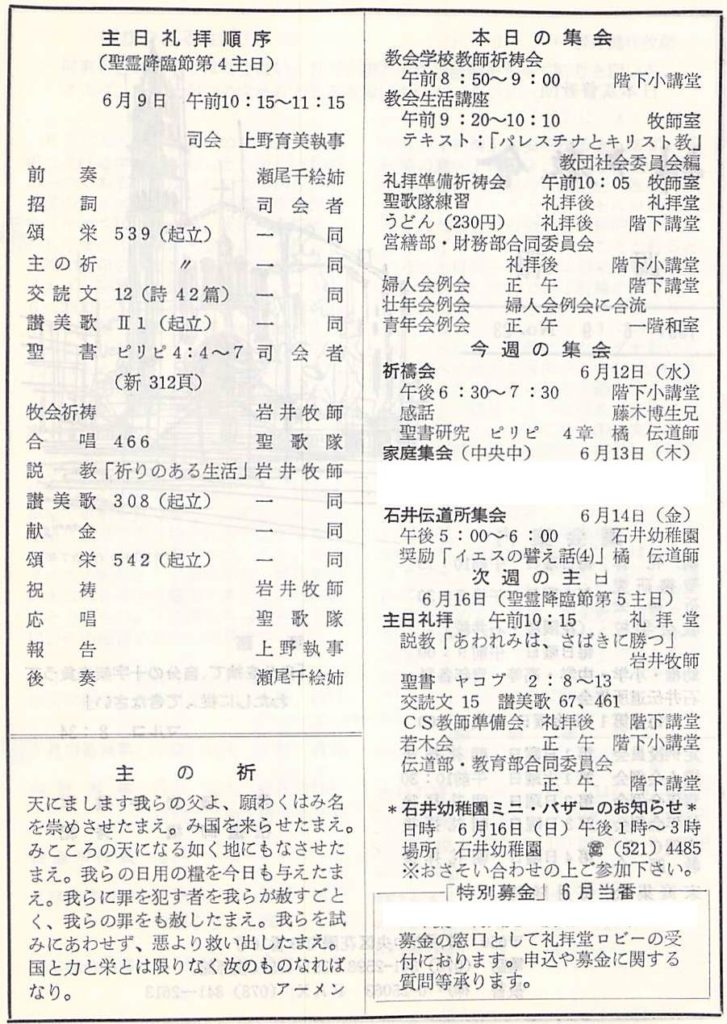 主日礼拝順序
(聖霊降臨節第4主日)
6月9日 午前10:15～11:15
司会 上野育美執事
前奏 瀬尾千絵姉
招詞 司会者
頌栄 539(起立) 一同
主の祈 〃 一同
交読文 12(詩42篇) 一同
讃美歌 Ⅱ1(起立) 一同
聖書 ピリピ4:4～7 司会者
(新 312頁)
牧会祈祷 岩井牧師
合唱 466 聖歌隊
説教「祈りのある生活」岩井牧師
讃美歌 308(起立) 一同
献金 一同
頌栄 542(起立) 一同
祝祷 岩井牧師
応唱 聖歌隊
報告 上野執事
後奏 瀬尾千絵姉
主の祈
天にまします我らの父よ、願わくはみ名
を崇めさせたまえ。み国を来らせたまえ。
みこころの天になる如く地にもなさせた
まえ。我らの日用の糧を今日も与えたま
え。我らに罪を犯す者を我らが赦すごと
く、我らの罪をも赦したまえ。我らを試
みにあわせず、悪より救い出したまえ。
国と力と栄とは限りなく汝のものなれば
なり。 アーメン
本日の集会
教会学校教師祈祷会
午前8:50～9:00 階下小講堂
教会生活講座
午前9:20～10:10 牧師室
テキスト:「パレスチナとキリスト教」
教団社会委員会編
礼拝準備祈祷会 午前10:05 牧師室
聖歌隊練習 礼拝後 礼拝堂
うどん(230円) 礼拝後 階下講堂
営繕部・財務部合同委員会
礼拝後 階下小講堂
婦人会例会 正午 階下講堂
壮年会例会 婦人会例会に合流
青年会例会 正午 一階和室
今週の集会
祈禱会 6月12日(水)
午後6:30～7:30 階下小講堂
感話 藤木博生兄
聖書研究 ピリピ 4章 橘 伝道師
家庭集会(中央中) 6月13日(木)
石井伝道所集会 6月14日(金)
午後5:00～6:00 石井幼稚園
奨励「イエスの譬え話(4)」橘 伝道師
次週の主日
6月16日(聖霊降臨節第5主日)
主日礼拝 午前10:15 礼拝堂
説教「あわれみは、さばきに勝つ」
岩井牧師
聖書 ヤコブ 2:8～13
交読文 15 讃美歌 67、461
CS教師準備会 礼拝後 階下講堂
若木会 正午 階下小講堂
伝道部・教育部合同委員会
正午 階下講堂
*石井幼稚園ミニ・バザーのお知らせ*
日時 6月16日(日)午後1時～3時
場所 石井幼稚園 ☎(521)4485
※おさそい合わせの上ご参加下さい。
「特別募金」6月当番
募金の窓口として礼拝堂ロビーの受
付におります。申込や募金に関する
質問等承ります。